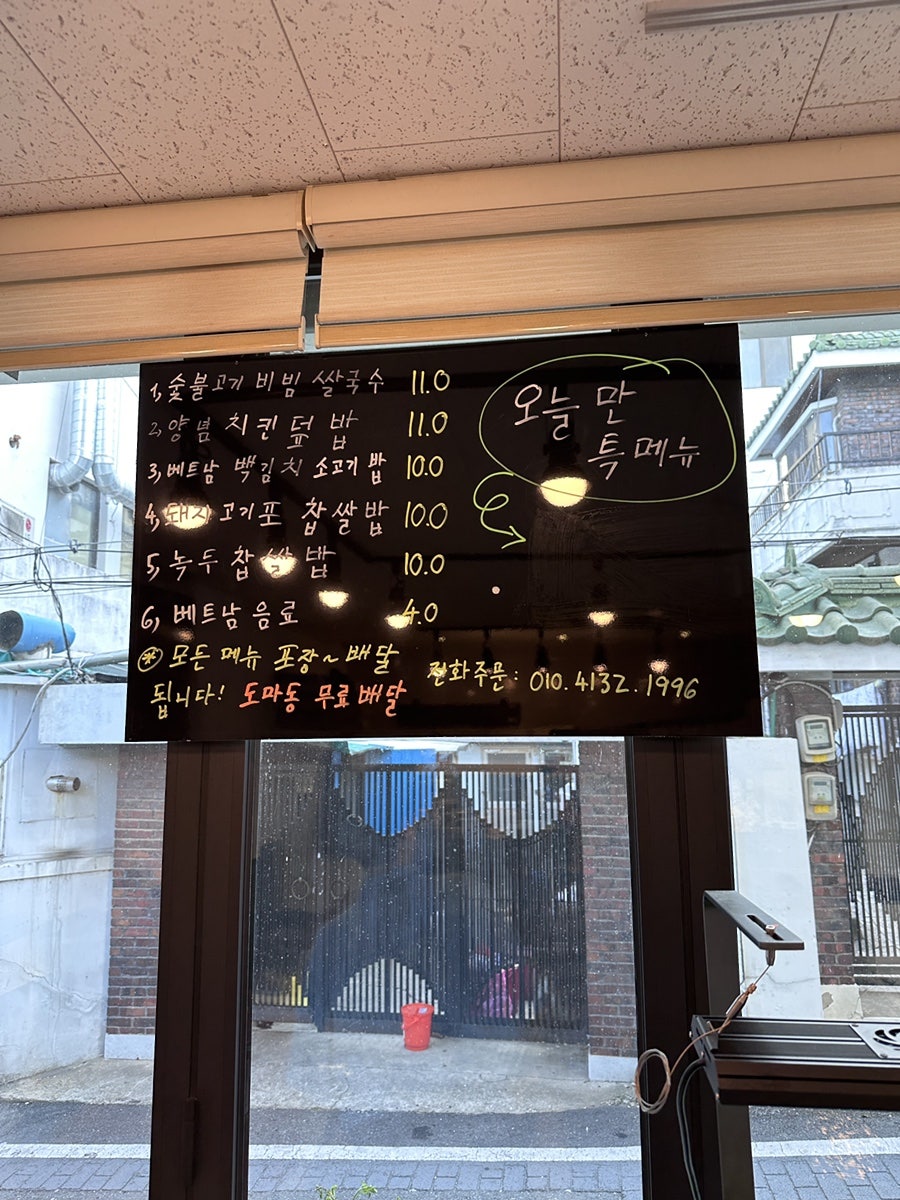 1, 숯불고기 비빔 쌀국수 11.0
2, 양념 치킨 덮밥 11.0
3, 베트남 백김치 소고기 밥 10.0
4, 돼지고기포 찹쌀밥 10.0
5, 녹두 찹쌀밥 10.0
6, 베트남 음료 4.0
※ 모든 메뉴 포장~배달
됩니다! 도마동 무료배달
오늘만
특메뉴
전화주문: 010.4132.1996